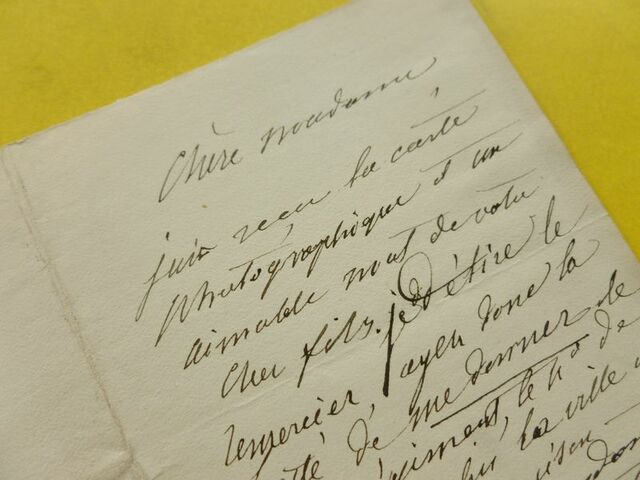 Chère madame
j'ai recu la carte
photographique et un
aimable mot de votre
cher fils. je désire le
remercier, ayez donc la
té de me donner de
égiment, le n° de
la ville